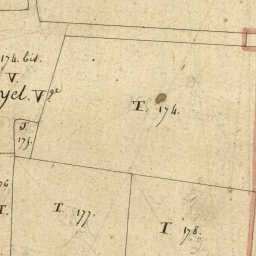 174. bis.
V.
yel. V.ge
T. 174.
J.
175.
76
T.
T. 177.
T 178.